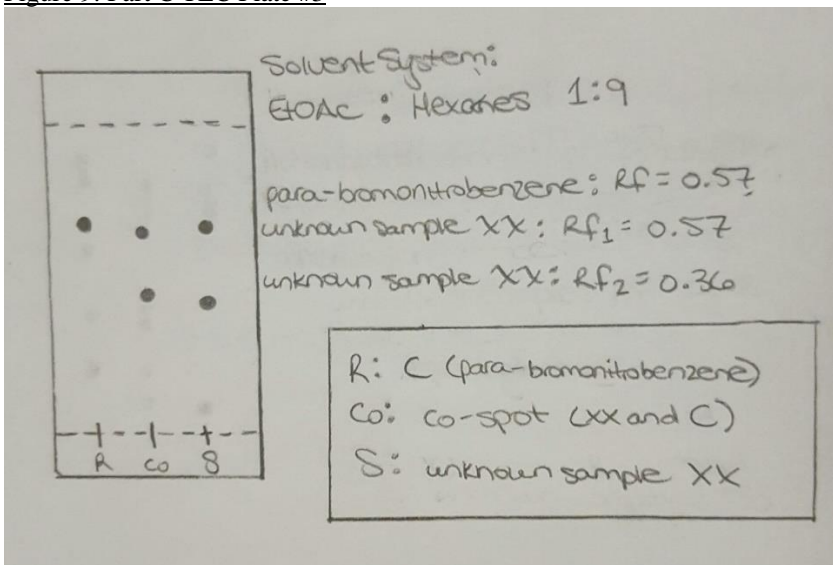 Figure 9: Part C TLC Plate #3
Solvent System:
EtOAc : Hexanes 1:9
para-bromonitrobenzene: Rf = 0.57
unknown sample XX: Rf1 = 0.57
unknown sample XX: Rf2 = 0.36
R: C (para-bromonitrobenzene)
Co: co-spot (XX and C)
S: unknown sample XX
R co S